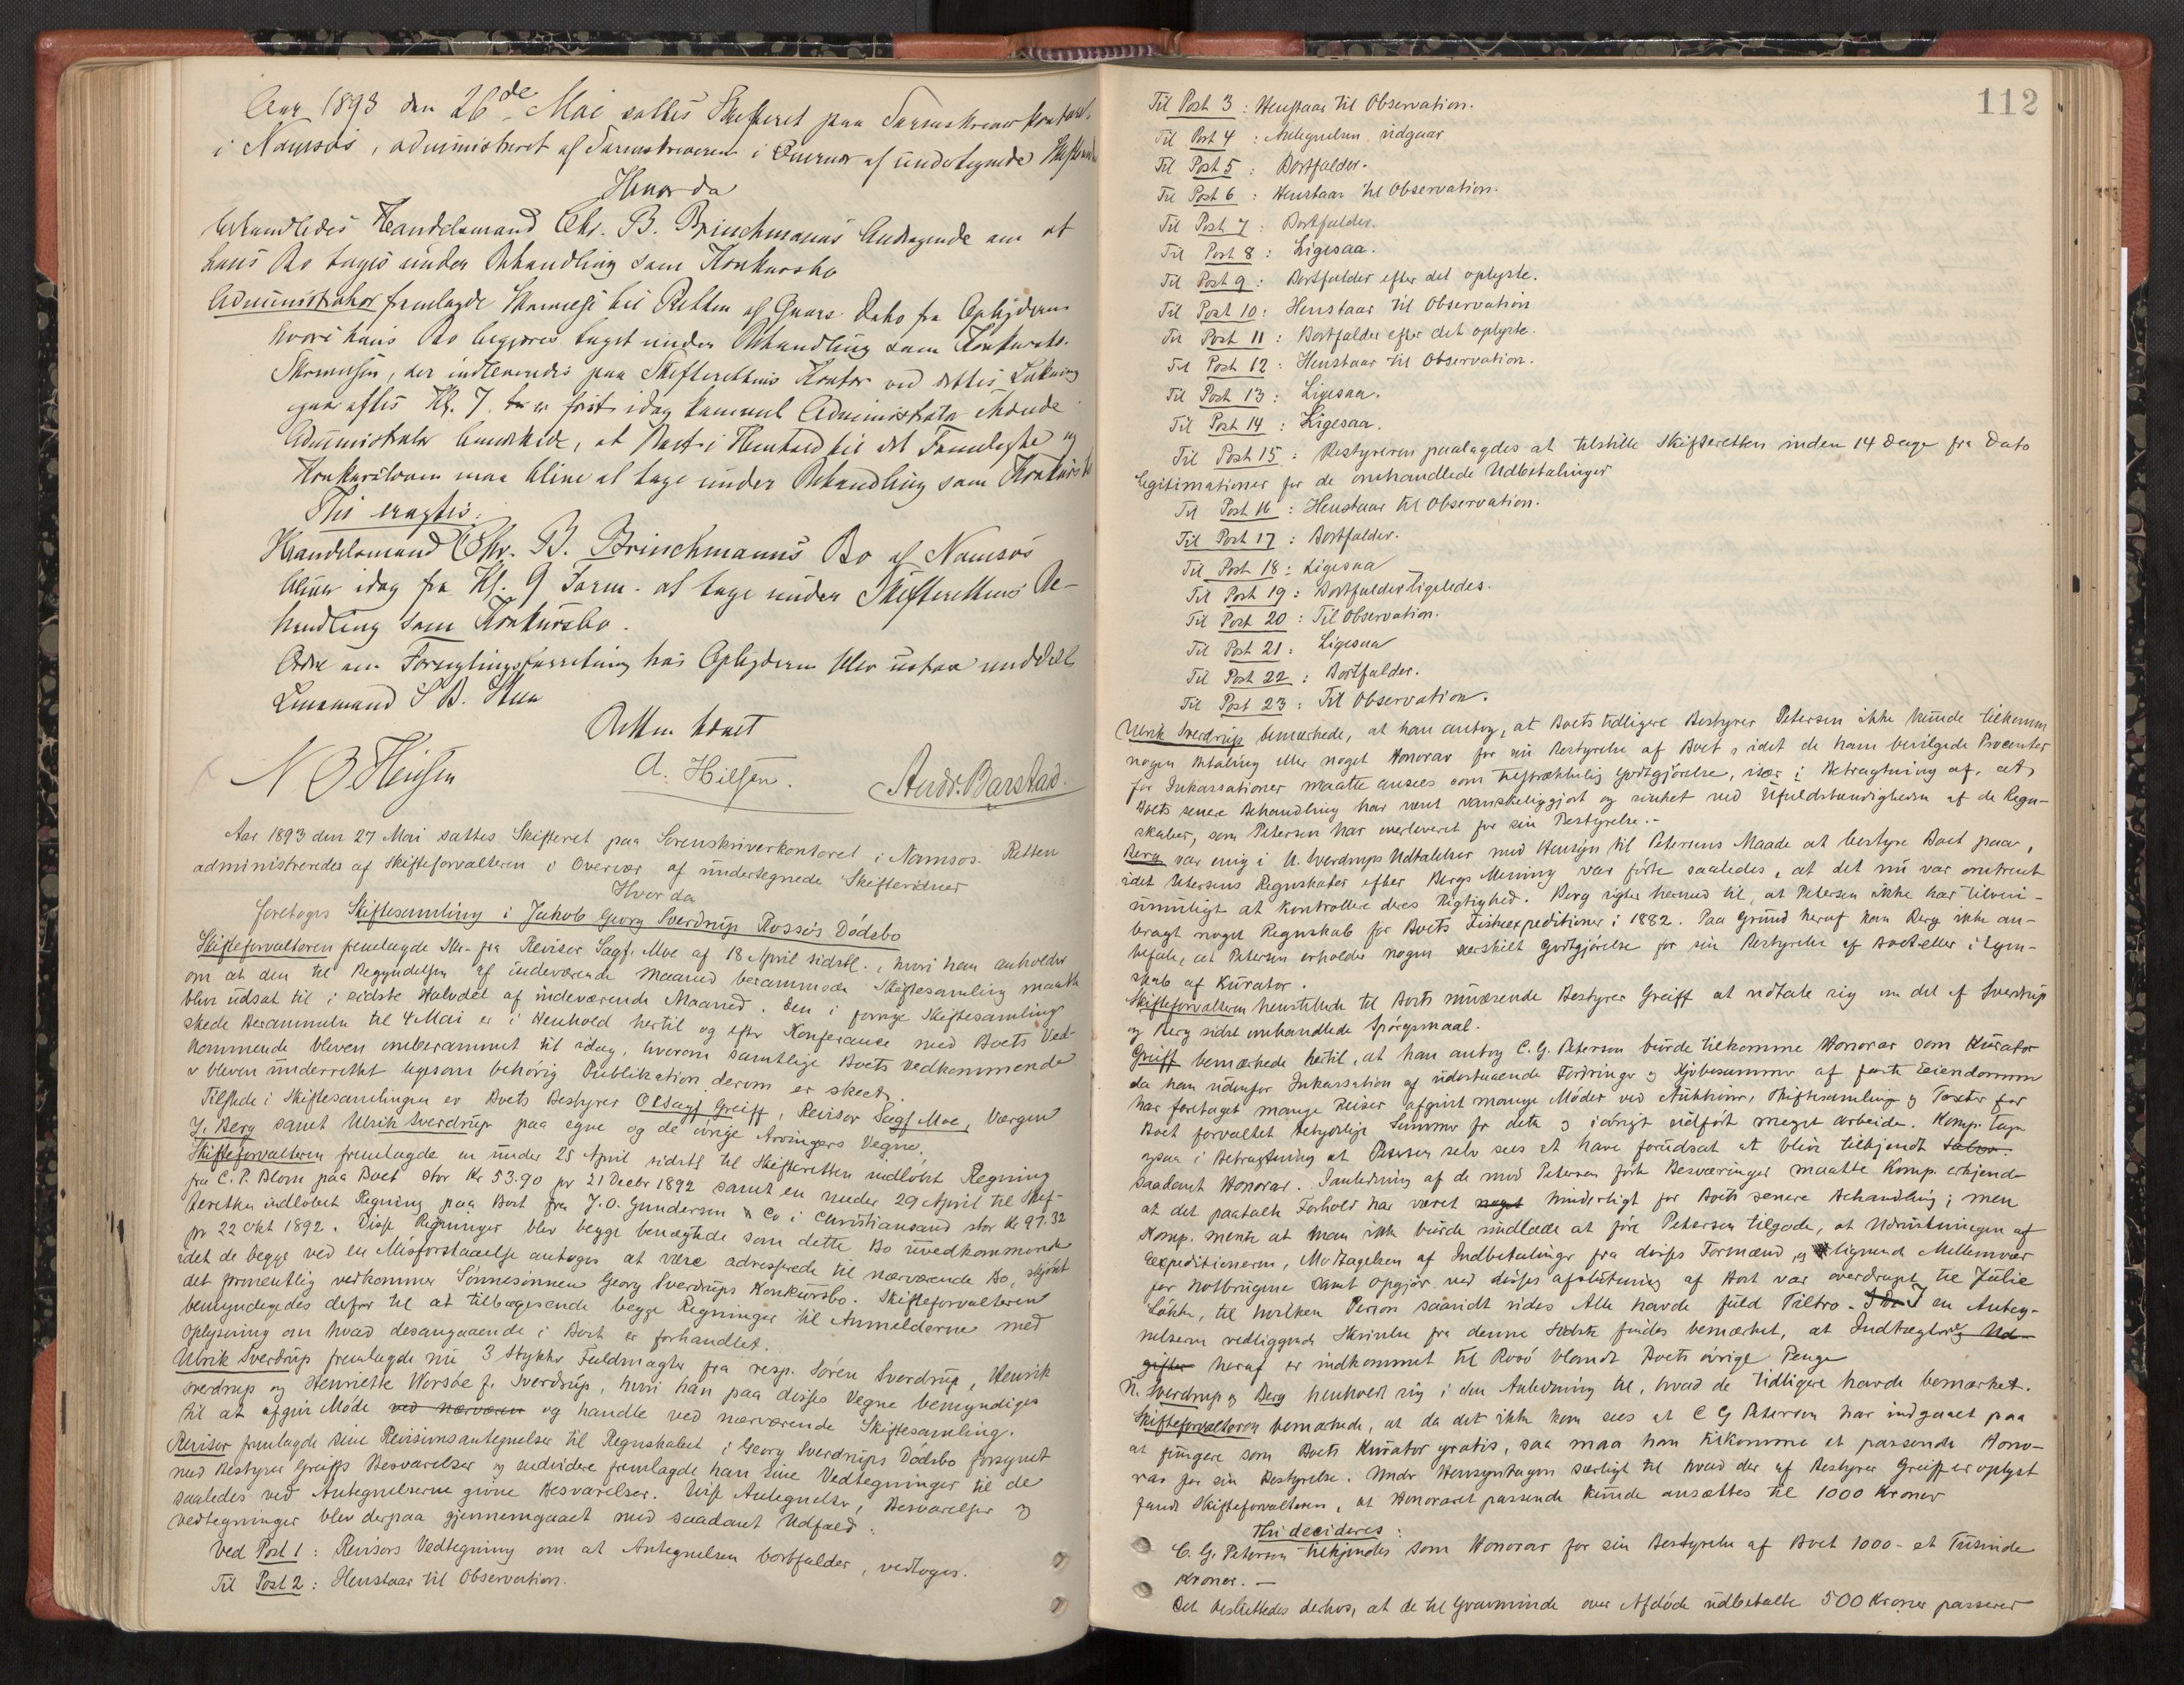 Aar 1893 den 26de Mai sattes Skifteret paa Sorenskriverkontoret
i Namsos, administreret af Sorenskriveren i Overvær af undertegnede Skiftevidner
Hvorda
behandledes Handelsmand Chr. B. Brinchmanns Andragende om at
hans Bo tages under Behandling som Konkursbo
Administrator fremlagde Skrivelse til Retten af Gaars Dato fra Opbyderen
hvori hans Bo begjæres taget under Behandling som Konkursbo.
Skrivelsen, der indleveredes paa Skifterettens Kontor ved dettes Lukning
igaar aftes Kl. 7. er først idag kommet Administrator ihænde
Administrator bemærkede, at Boet i Henhold til det Fremlagte og
Konkursloven maa blive at tage under Behandling som Konkursbo
Thi eragtes:
Handelsmand Chr. B. Brinchmanns Bo af Namsos
bliver idag fra Kl. 9 Form. at tage under Skifterettens Be-
handling som Konkursbo.
Ordre om Forseglingsforretning hos Opbyderen blev strax meddelt
Lensmand S B. Hun
Retten hævet
N B Heilsen A. Hilsen. Andr. Barstad.
Aar 1893 den 27 Mai sattes Skifteret paa Sorenskriverkontoret i Namsos. Retten
administreredes af Skifteforvalteren i Overvær af undertegnede Skiftevidner
Hvor da
foretoges Skiftesamling i Jakob Georg Sverdrup Rossös Dödsbo
Skifteforvalteren fremlagde Skr. fra Revisor Sagf. Moe af 18 April sidstl., hvori han anholder
om at den til Begyndelsen af indeværende Maaned berammede Skiftesamling maatte
blive udsat til i sidste Halvdel af indeværende Maaned. Den i forrige Skiftesamling
skede Berammelse til 4 Mai er i Henhold hertil og efter Konferance med Boets Ved-
kommende bleven omberammet til idag, hvorom samtlige Boets Vedkommende
er bleven underrettet ligesom behörig Publikation derom er skeet.
Tilstede i Skiftesamlingen er Boets Bestyrer O.R.Sagf. Greiff, Revisor Sagf. Moe, Værgen
J. Berg samt Ulrik Sverdrup paa egne og de övrige Arvingers Vegne.
Skifteforvalteren fremlagde en under 25 April sidstl til Skifteretten indlöbet Regning
fra C. P. Blom paa Boet stor Kr 53.90 pr 21 Decbr 1892 samt en under 29 April til Skif-
teretten indlöbet Regning paa Boet fra J. O. Gundersen & Co i Christiansand stor Kr 97.32
pr 22 Okt 1892. Disse Regninger blev begge benægtede som dette Bo uvedkommende
idet de begge ved en Misforstaaelse antoges at være adresserede til nærværende Bo, skjönt
det formentlig vedkommer Sönnesönnen Georg Sverdrups Konkursbo. Skifteforvalteren
bemyndigedes derfor til at tilbagesende begge Regninger til Anmelderne med
Oplysning om hvad desangaaende i Boet er forhandlet.
Ulrik Sverdrup fremlagde nu 3 Stykker Fuldmagter fra resp. Sören Sverdrup, Henrik
Sverdrup og Henriette Worsöe f. Sverdrup, hvori han paa disses Vegne bemyndiges
til at afgive Möde ved nærværen og handle ved nærværende Skiftesamling.
Revisor fremlagde sine Revisionsantegnelser til Regnskabet i Georg Sverdrups Dödsbo forsynet
med Bestyrer Greiffs Besvarelser og endvidere fremlagde han sine Vedtegninger til de
saaledes ved Antegnelserne givne Besvarelser. Disse Antegnelser, Besvarelser og
Vedtegninger blev derpaa gjennemgaaet med saadant Udfald:
Ved Post 1: Revisors Vedtegning om at Antegnelsen bortfalder, vedtoges.
Til Post 2: Henstaar til Observation.
112
Til Post 3: Henstaar til Observation.
Til Post 4: Antegnelsen udgaar
Til Post 5: Bortfalder.
Til Post 6: Henstaar til Observation.
Til Post 7: Bortfalder.
Til Post 8: Ligesaa.
Til Post 9: Bortfalder efter det oplyste.
Til Post 10: Henstaar til Observation
Til Post 11: Bortfalder efter det oplyste.
Til Post 12: Henstaar til Observation.
Til Post 13: Ligesaa.
Til Post 14: Ligesaa.
Til Post 15: Bestyreren paalagdes at tilstille Skifteretten inden 14 Dage fra Dato
Legitimationer for de omhandlede Udbetalinger
Til Post 16: Henstaar til Observation.
Til Post 17: Bortfalder.
Til Post 18: Ligesaa
Til Post 19: Bortfalder ligeledes.
Til Post 20: Til Observation.
Til Post 21: Ligesaa
Til Post 22: Bortfalder.
Til Post 23: Til Observation.
Ulrik Sverdrup bemærkede, at han antog, at Boets tidligere Bestyrer Petersen ikke kunde tilkomme
nogen Betaling eller noget Honorar for sin Bestyrelse af Boet, idet de ham bevilgede Procenter
for Inkassationer maatte ansees som tilstrækkelig Godtgjörelse, især i Betragtning af, at
Boets senere Behandling har været vanskeliggjort og sinket ved Ufuldstændigheden af de Regn-
skaber, som Petersen har overleveret for sin Bestyrelse.-
Berg var enig i U. Sverdrups Udtalelser med Hensyn til Petersens Maade at bestyre Boet paa,
idet Petersens Regnskaber efter Bergs Mening var förte saaledes, at det nu var omtrent
umuligt at kontrollere deres Rigtighed. Berg sigter herved til, at Petersen ikke har tilveie-
bragt noget Regnskab for Boets Fiskeexpeditioner i 1882. Paa Grund heraf kan Berg ikke an-
befale, at Petersen erholder nogen særskilt Godtgjörelse for sin Bestyrelse af Boet eller i Egen-
skab af Kurator.
Skifteforvalteren henstillede til Boets nuværende Bestyrer Greiff at udtale sig om det af Sverdrup
og Berg sidst omhandlede Spörgsmaal.
Greiff bemærkede hertil, at han antog C. G. Petersen burde tilkomme Honorar som Kurator
da han udenfor Inkassation af udestaaende Fordringer og Kjöbesummer af faste Eiendomme
har foretaget mange Reiser afgivet mange Möder ved Auktioner, Skiftesamlinger og Taxter for
Boet forvaltet betydelige Summer for dette og iövrigt udfört meget Arbeide. Komp. tager
ogsaa i Betragtning at Petersen selv sees at have forudsat at blive tilkjendt
saadant Honorar. I Anledning af de mod Petersen förte Besværinger maatte Komp. erkjende
at det paatalte Forhold har været noget hinderligt for Boets senere Behandling; men
Komp. mente at man ikke burde undlade at före Petersen tilgode, at Udrustningen af
Expeditionerne, Modtagelsen af Indbetalinger fra disses Formænd og lignende Mellemvær
for Notbrugene samt Opgjör ved disses Afslutning af Boet var overdraget til Julie
Lökke, til hvilken Person saavidt vides Alle havde fuld Tiltro. I en Antegn-
nelserne vedliggende Skrivelse fra denne sidste findes bemærket, at Indtægter og Ud-
gifter heraf er indkommet til Rosö blandt Boets övrige Penge
U. Sverdrup og Berg henholdt sig i den Anledning til, hvad de tidligere havde bemærket.
Skifteforvalteren bemærkede, at da det ikke kan sees at C G Petersen har indgaaet paa
at fungere som Boets Kurator gratis, saa maa han tilkomme et passende Hono-
rar for sin Bestyrelse. Under Hensyntagen særligt til hvad der af Bestyrer Greiff er oplyst
fandt Skifteforvalteren, at Honoraret passende kunde ansættes til 1000 Kroner
Thi decideres:
C. G. Petersen tilkjendes som Honorar for sin Bestyrelse af Boet 1000 - et Tusinde
Kroner. -
Det besluttedes derhos, at de til Gravminde over Afdöde udbetalte 500 Kroner passerer